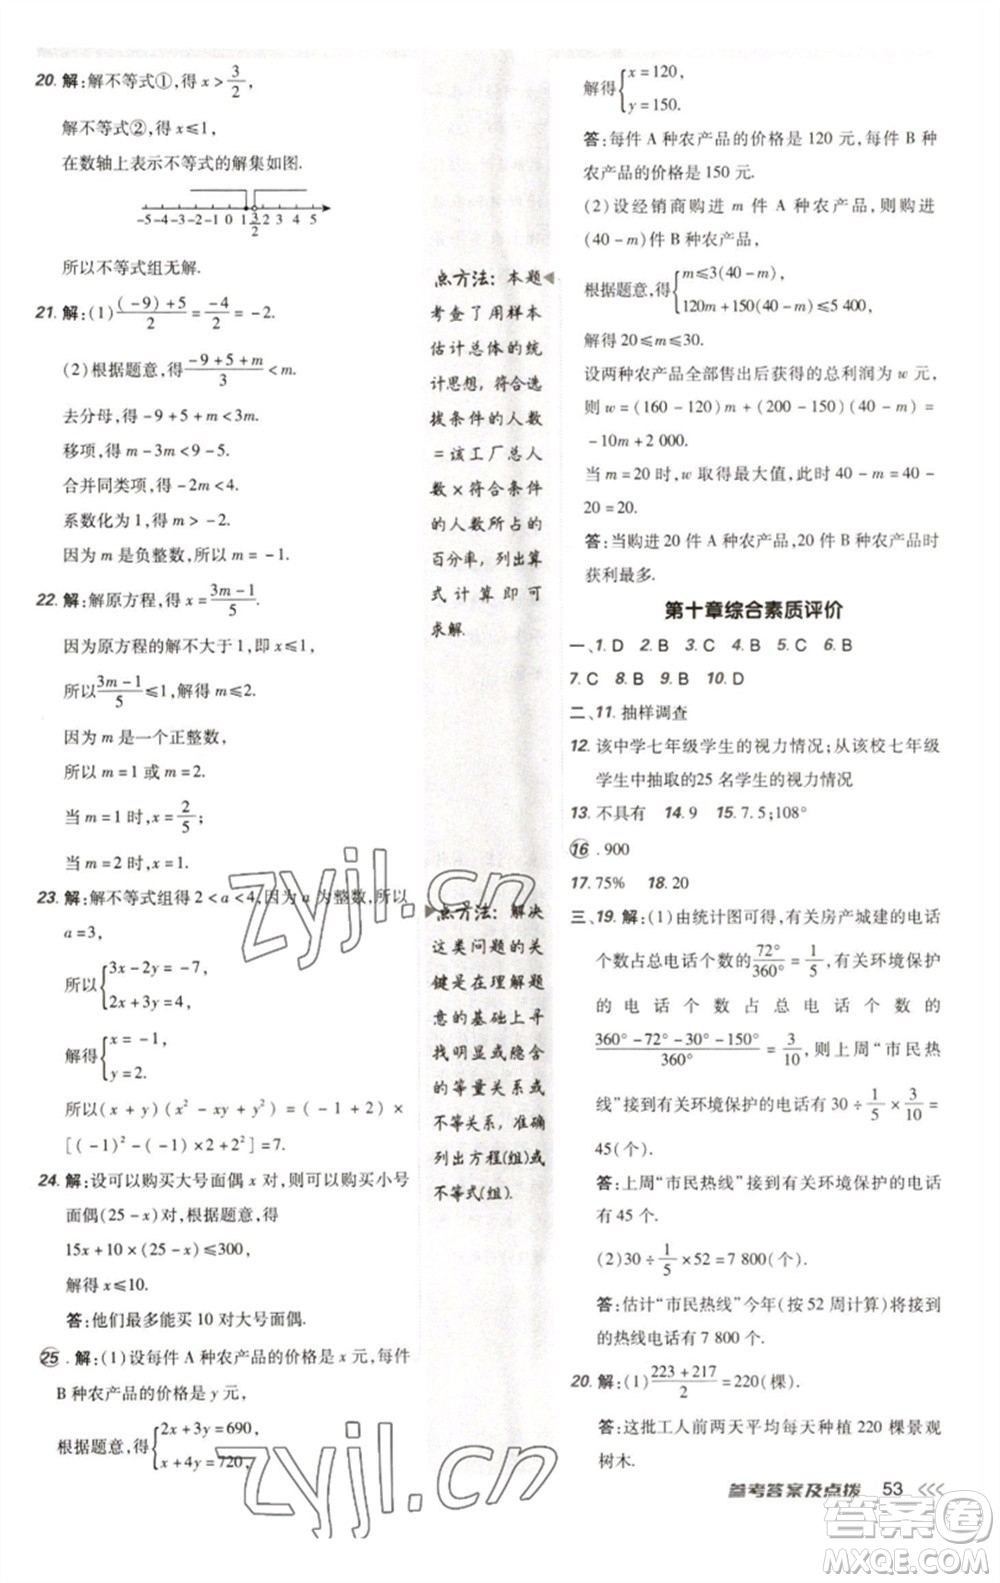 20. 解:解不等式①,得 x > 3/2,
解不等式②,得 x ≤ 1,
在数轴上表示不等式的解集如图.
-5 -4 -3 -2 -1 0 1 3/2 2 3 4 5
所以不等式组无解.
21. 解:(1) ((-9)+5)/2 = -4/2 = -2.
(2)根据题意,得 (-9+5+m)/3 < m.
去分母,得 -9+5+m<3m.
移项,得 m-3m<9-5.
合并同类项,得 -2m<4.
系数化为 1,得 m>-2.
因为 m 是负整数,所以 m=-1.
22. 解:解原方程,得 x = (3m-1)/5.
因为原方程的解不大于 1,即 x≤1,
所以 (3m-1)/5 ≤1,解得 m≤2.
因为 m 是一个正整数,
所以 m=1 或 m=2.
当 m=1 时,x= 2/5;
当 m=2 时,x=1.
23. 解:解不等式组得 2<a<4,因为 a 为整数,所以
a=3,
所以{3x-2y=-7,
2x+3y=4,
解得{x=-1,
y=2.
所以(x+y)(x²-xy+y²)=(-1+2)×
[(-1)²-(-1)×2+2²]=7.
24. 解:设可以购买大号面偶 x 对,则可以购买小号
面偶(25-x)对,根据题意,得
15x+10×(25-x)≤300,
解得 x≤10.
答:他们最多能买 10 对大号面偶.
25. 解:(1)设每件 A 种农产品的价格是 x 元,每件
B 种农产品的价格是 y 元,
根据题意,得{2x+3y=690,
x+4y=720,
点方法:本题
考查了用样本
估计总体的统
计思想,符合选
拔条件的人数
=该工厂总人
数×符合条件
的人数所占的
百分率,列出算
式计算即可
求解.
点方法:解决
这类问题的关
键是在理解题
意的基础上寻
找明显或隐含
的等量关系或
不等关系,准确
列出方程(组)或
不等式(组).
解得{x=120,
y=150.
答:每件 A 种农产品的价格是 120 元,每件 B 种
农产品的价格是 150 元.
(2)设经销商购进 m 件 A 种农产品,则购进
(40-m)件 B 种农产品,
根据题意,得{m≤3(40-m),
120m+150(40-m)≤5 400,
解得 20≤m≤30.
设两种农产品全部售出后获得的总利润为 w 元,
则 w=(160-120)m+(200-150)(40-m)=
-10m+2 000.
当 m=20 时,w 取得最大值,此时 40-m=40-
20=20.
答:当购进 20 件 A 种农产品,20 件 B 种农产品时
获利最多.
第十章综合素质评价
一、1. D 2. B 3. C 4. B 5. C 6. B
7. C 8. B 9. B 10. D
二、11. 抽样调查
12. 该中学七年级学生的视力情况;从该校七年级
学生中抽取的25 名学生的视力情况
13. 不具有 14. 9 15. 7.5;108°
16. 900
17. 75% 18. 20
三、19. 解:(1)由统计图可得,有关房产城建的电话
个数占总电话个数的 72°/360° = 1/5,有关环境保护
的电话个数占总电话个数的
(360°-72°-30°-150°)/360° = 3/10,则上周“市民热
线”接到有关环境保护的电话有 30÷1/5×3/10=
45(个).
答:上周“市民热线”接到有关环境保护的电话
有 45 个.
(2)30÷1/5×52=7 800(个).
答:估计“市民热线”今年(按 52 周计算)将接到
的热线电话有 7 800 个.
20. 解:(1) (223+217)/2 =220(棵).
答:这批工人前两天平均每天种植 220 棵景观
树木.
参考答案及点拨 53
zyjl.cn
zyjl.cn
答案圈
MXQE.COM